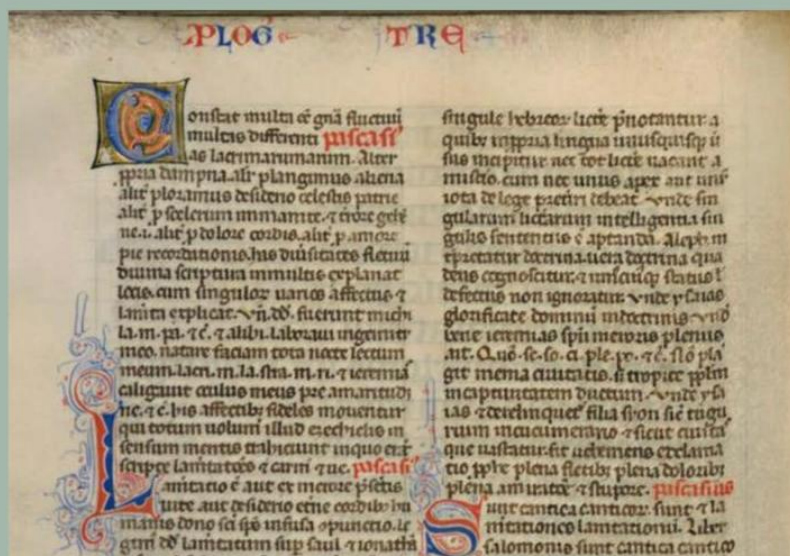 PLOG TRE
Constat multa eē gn̄a fluctuū
multas differenti pascasi
as lacrimarum anim. Aliter
ppria dampna. alit plangimus aliena
alit ploramus desiderio celestis patrie
alit p scelerum inmanite. ⁊ t̄rore gehē
ne. i. alit p dolore cordis. alit p amore
pie recordationis. his diūsitates fletuū
diuina scriptura in multis explanat
locis. cum singuloꝝ uarios affectus ⁊
lam̄ta explicat. vn̄. dd̄. fuerunt michi
la. m. pa. ⁊ c̄. ⁊ alibi. laboraui in gemitu
meo. natare faciam tota nocte lectum
meum. lacri. m. la. stra. m. ri. ⁊ ieremia
caligauit oculus meus pre amaritudi
ne. ⁊ c̄. his affectibꝫ fideles mouentur
qui totum uolum̄ illud ezechielis in
sensum mentis trahiciunt in quo erāt
scripte lam̄tatōes ⁊ carm̄ ⁊ ue. pascasi
Lam̄tatio ē aut ex merore p̄sentis
uite aut desiderio et̄ne cordibꝫ hu
manis dono sc̄i sp̄s infusa ꝯpunctio. le
gim̄ dd̄ lam̄tatum sup saul ⁊ ionathā
singule hebreoꝝ litt̄e p̄notantur. a
quibꝫ in ppria lingua unusquisqꝫ ū
sus incipitur nec tot litt̄e uacant a
misterio. cum nec unus apex aut unū
iota de lege pretiri debeat. vnde sin
gularum litt̄arum intelligentia sin
gulis sententiis ē aptanda. Aleph in
t̄pretatur doctrina. uera doctrina qua
deus cognoscitur. ⁊ uniuscuiqꝫ status ł
defectus non ignoratur. vnde ysaias
glorificate dominū in doctrinis. vnd̄
bene ieremias sp̄u meroris plenus
ait. Quō. se. so. ci. ple. po. ⁊ c̄. sło pla
git menia ciuitatis. s; tropice pp̄lm
in captiuitatem ductum. vnde ysa
ias ⁊ derelinquet̄ filia syon sic̄ tugu
rium in cucumerario ⁊ sicut ciuitas
que uastatur. fit uehemens exclama
tio pphe plena fletibꝫ plena doloribꝫ
plena amiratōe ⁊ stupore. pascasius
Sunt cantica canticoꝝ. sunt ⁊ la
mtationes lamtationū. Liber
salomonis sunt cantica cantico